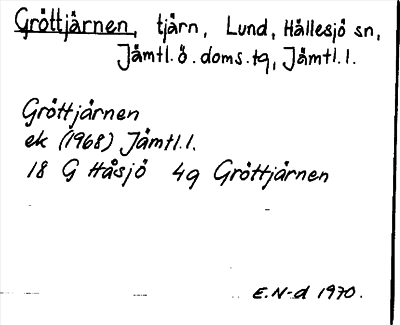 Gröttjärnen, tjärn, Lund, Hällesjö sn,
Jämtl.ö.doms.tg, Jämtl.l.
Gröttjärnen
ek (1968) Jämtl.l.
18 G Håsjö 4g Gröttjärnen
E.N-d 1970.